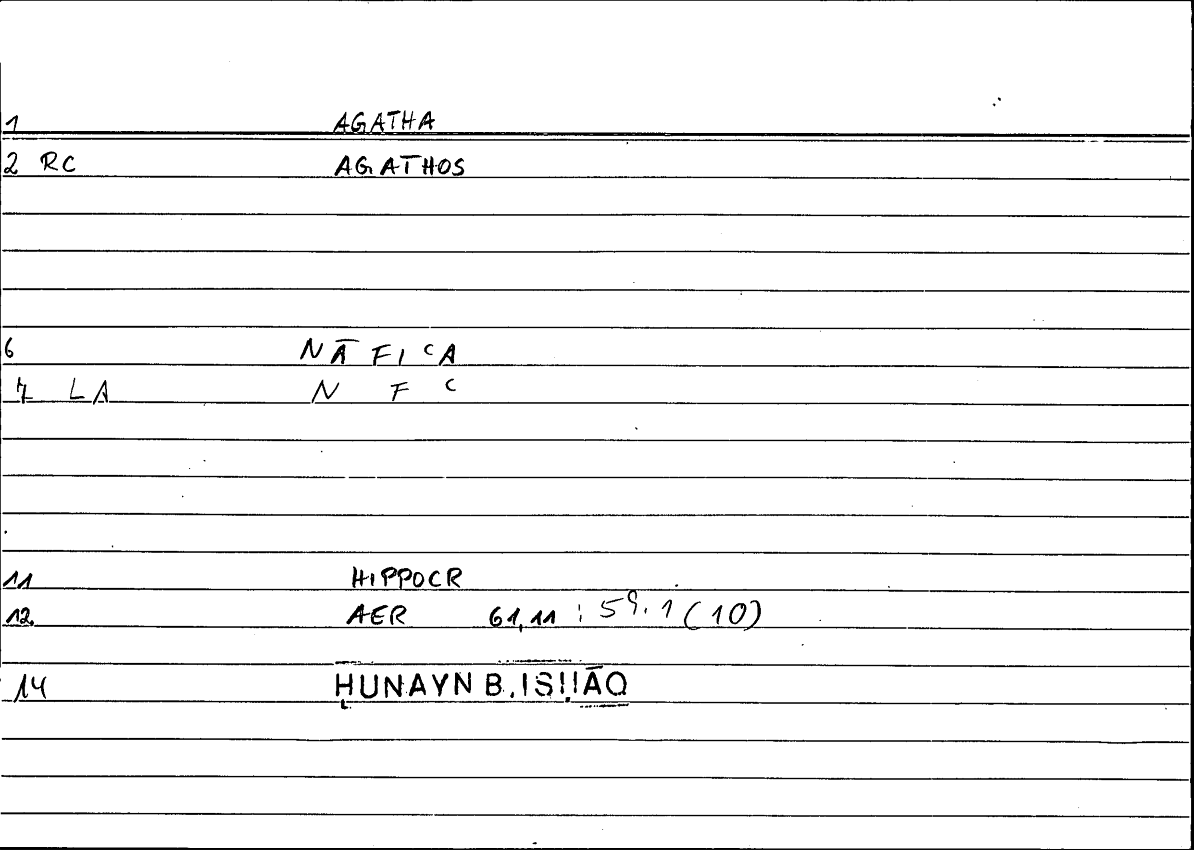 1 AGATHA
2 RC AGATHOS
6 NĀFIʿA
7 LA N F ʿ
11 HIPPOCR
12. AER 61,11 : 59.1 (10)
14 ḤUNAYN B. ISḤĀQ